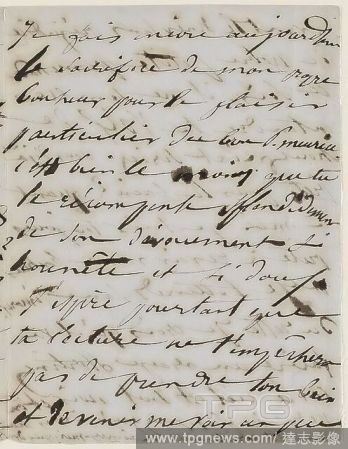 Je fais même aujourd'hui
le sacrifice de mon propre
bonheur pour le plaisir
particulier du bon P. meurice
c'est bien le moins que tu
le récompense splendidement
de son dévouement si
honnête et si doux
J'espère pourtant que
ta lecture ne t'empêchera
pas de prendre ton bain
et de venir me voir un peu
TPG
www.tpgnews.com | 達志影像